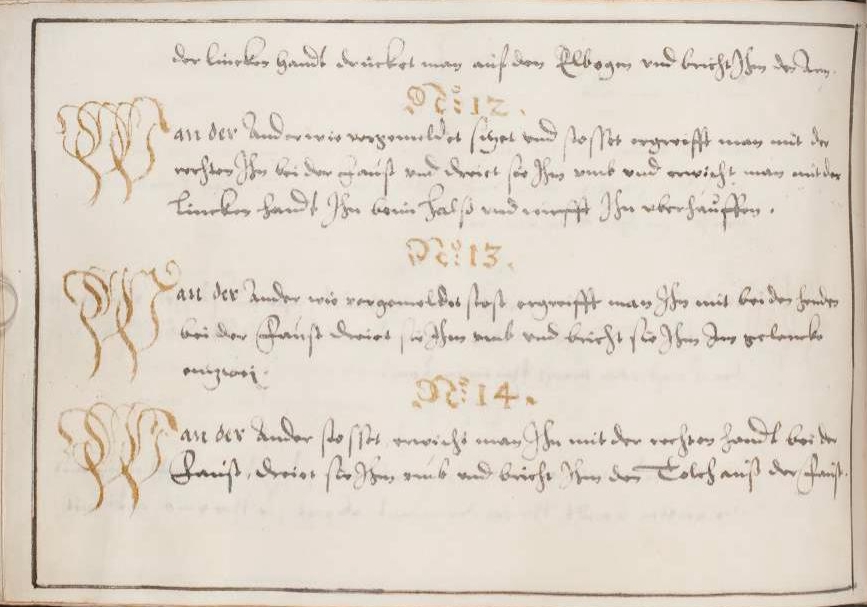 der lincken handt drücket man auf den Elbogen vnd bricht Ihm den Arm.
No: 12.
Wan der Ander wie vorgemeldet sizet vnd stosset ergreifft man mit der
rechten Ihn bei der faust vnd dreiet sie Ihm vmb vnd erwischt man mit der
lincken handt Ihn beim halß vnd wirfft Ihn vberhauffen.
No: 13.
Wan der Ander wie vorgemeldet stost ergreifft man Ihn mit beiden henden
bei der Faust dreiet sie Ihm vmb vnd bricht sie Ihm Im gelencke
entzwei.
No: 14.
Wan der Ander stosset, erwischt man Ihn mit der rechten handt bei der
Faust, dreiet sie Ihm vmb vnd bricht Ihm den Tolch auß der Faust.